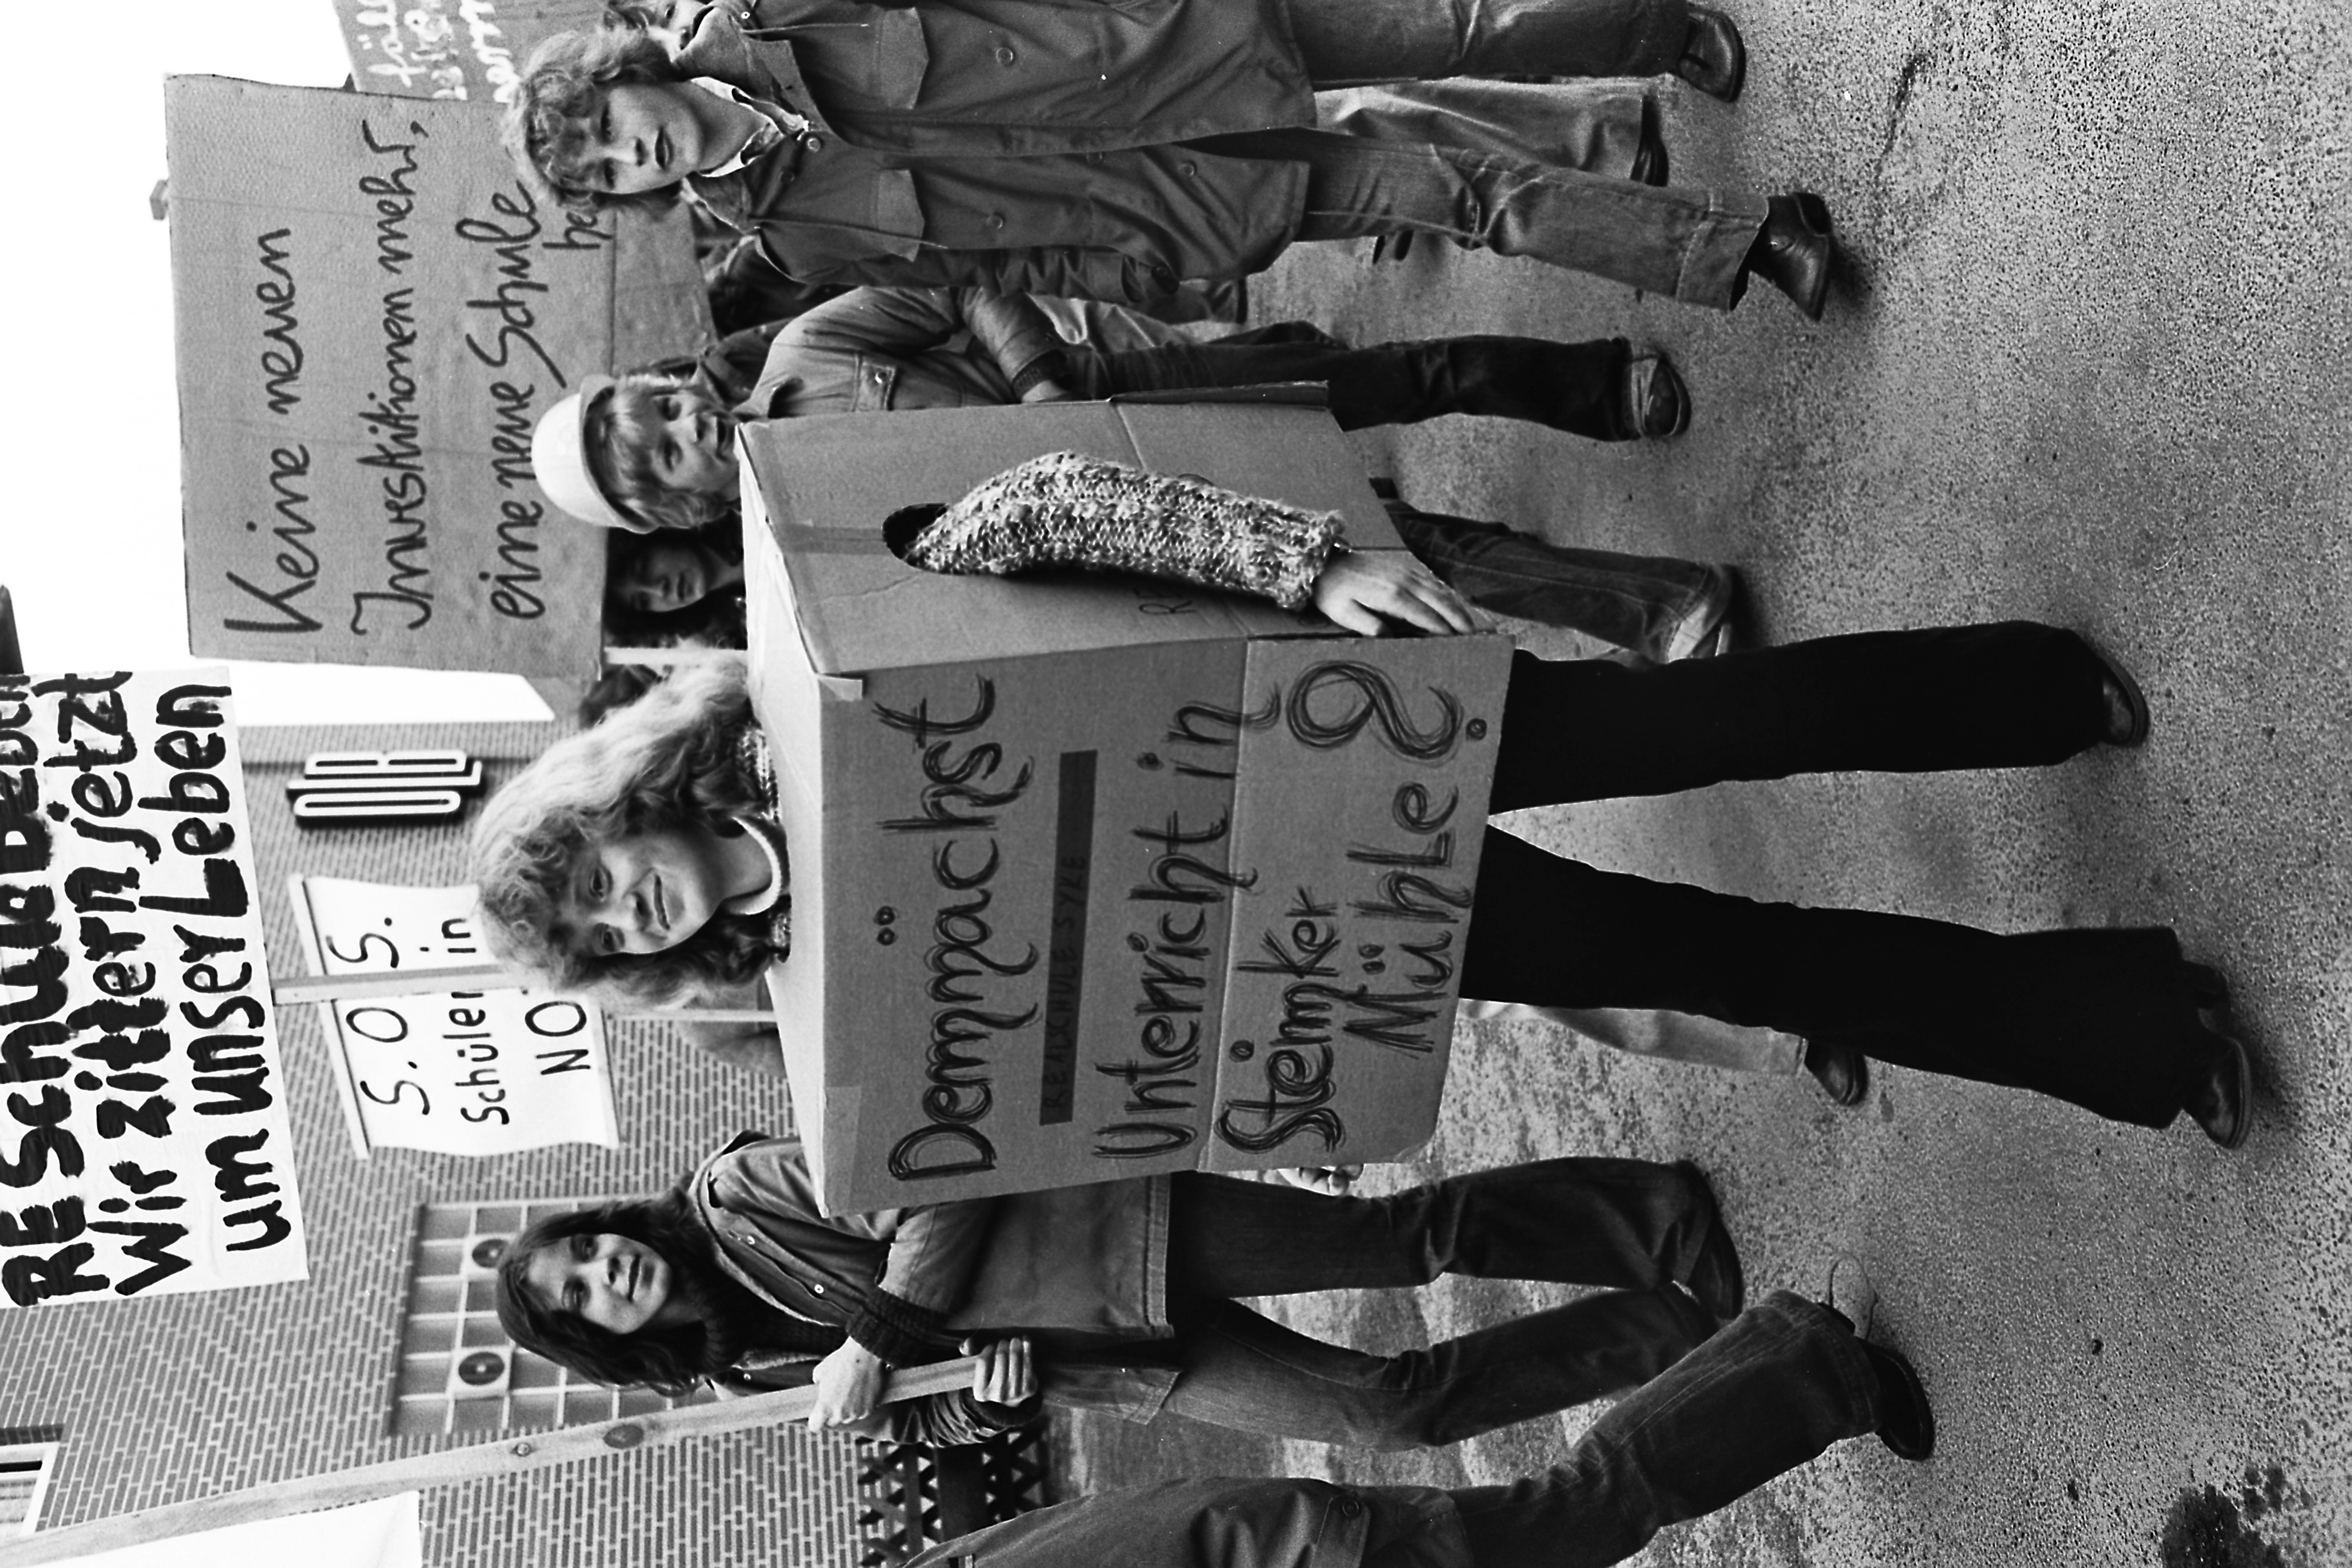 RE SCHULE
Wir zittern jetzt
um unser Leben
S.O.S.
Schüler in
NO
OLB
Keine neuen
Investitionen mehr,
eine neue Schule
he
Demnächst
REALSCHULE SYKE
Unterricht in
Steimker
Mühle?